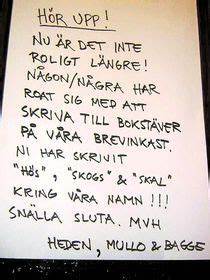 HÖR UPP!
NU ÄR DET INTE
ROLIGT LÄNGRE!
NÅGON/NÅGRA HAR
ROAT SIG MED ATT
SKRIVA TILL BOKSTÄVER
PÅ VÅRA BREVINKAST.
NI HAR SKRIVIT
"HÖS", "SKOGS" & "SKAL"
KRING VÅRA NAMN!!!
SNÄLLA SLUTA. MVH
HEDEN, MULLO & BAGGE